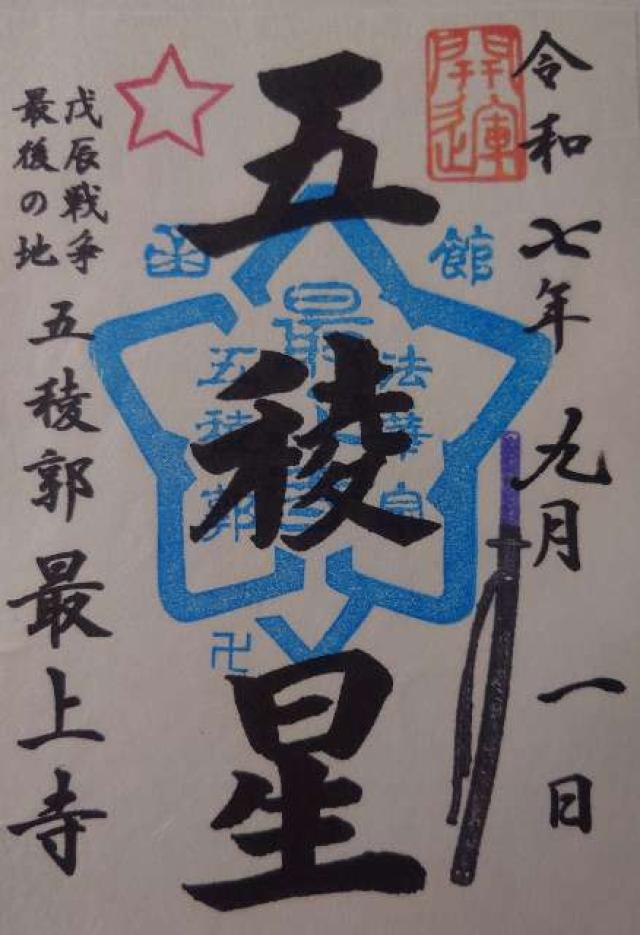 開運
令和七年九月一日
五稜星
函館
法華宗
最上寺
五稜郭
卍
戊辰戦争
最後の地
五稜郭最上寺